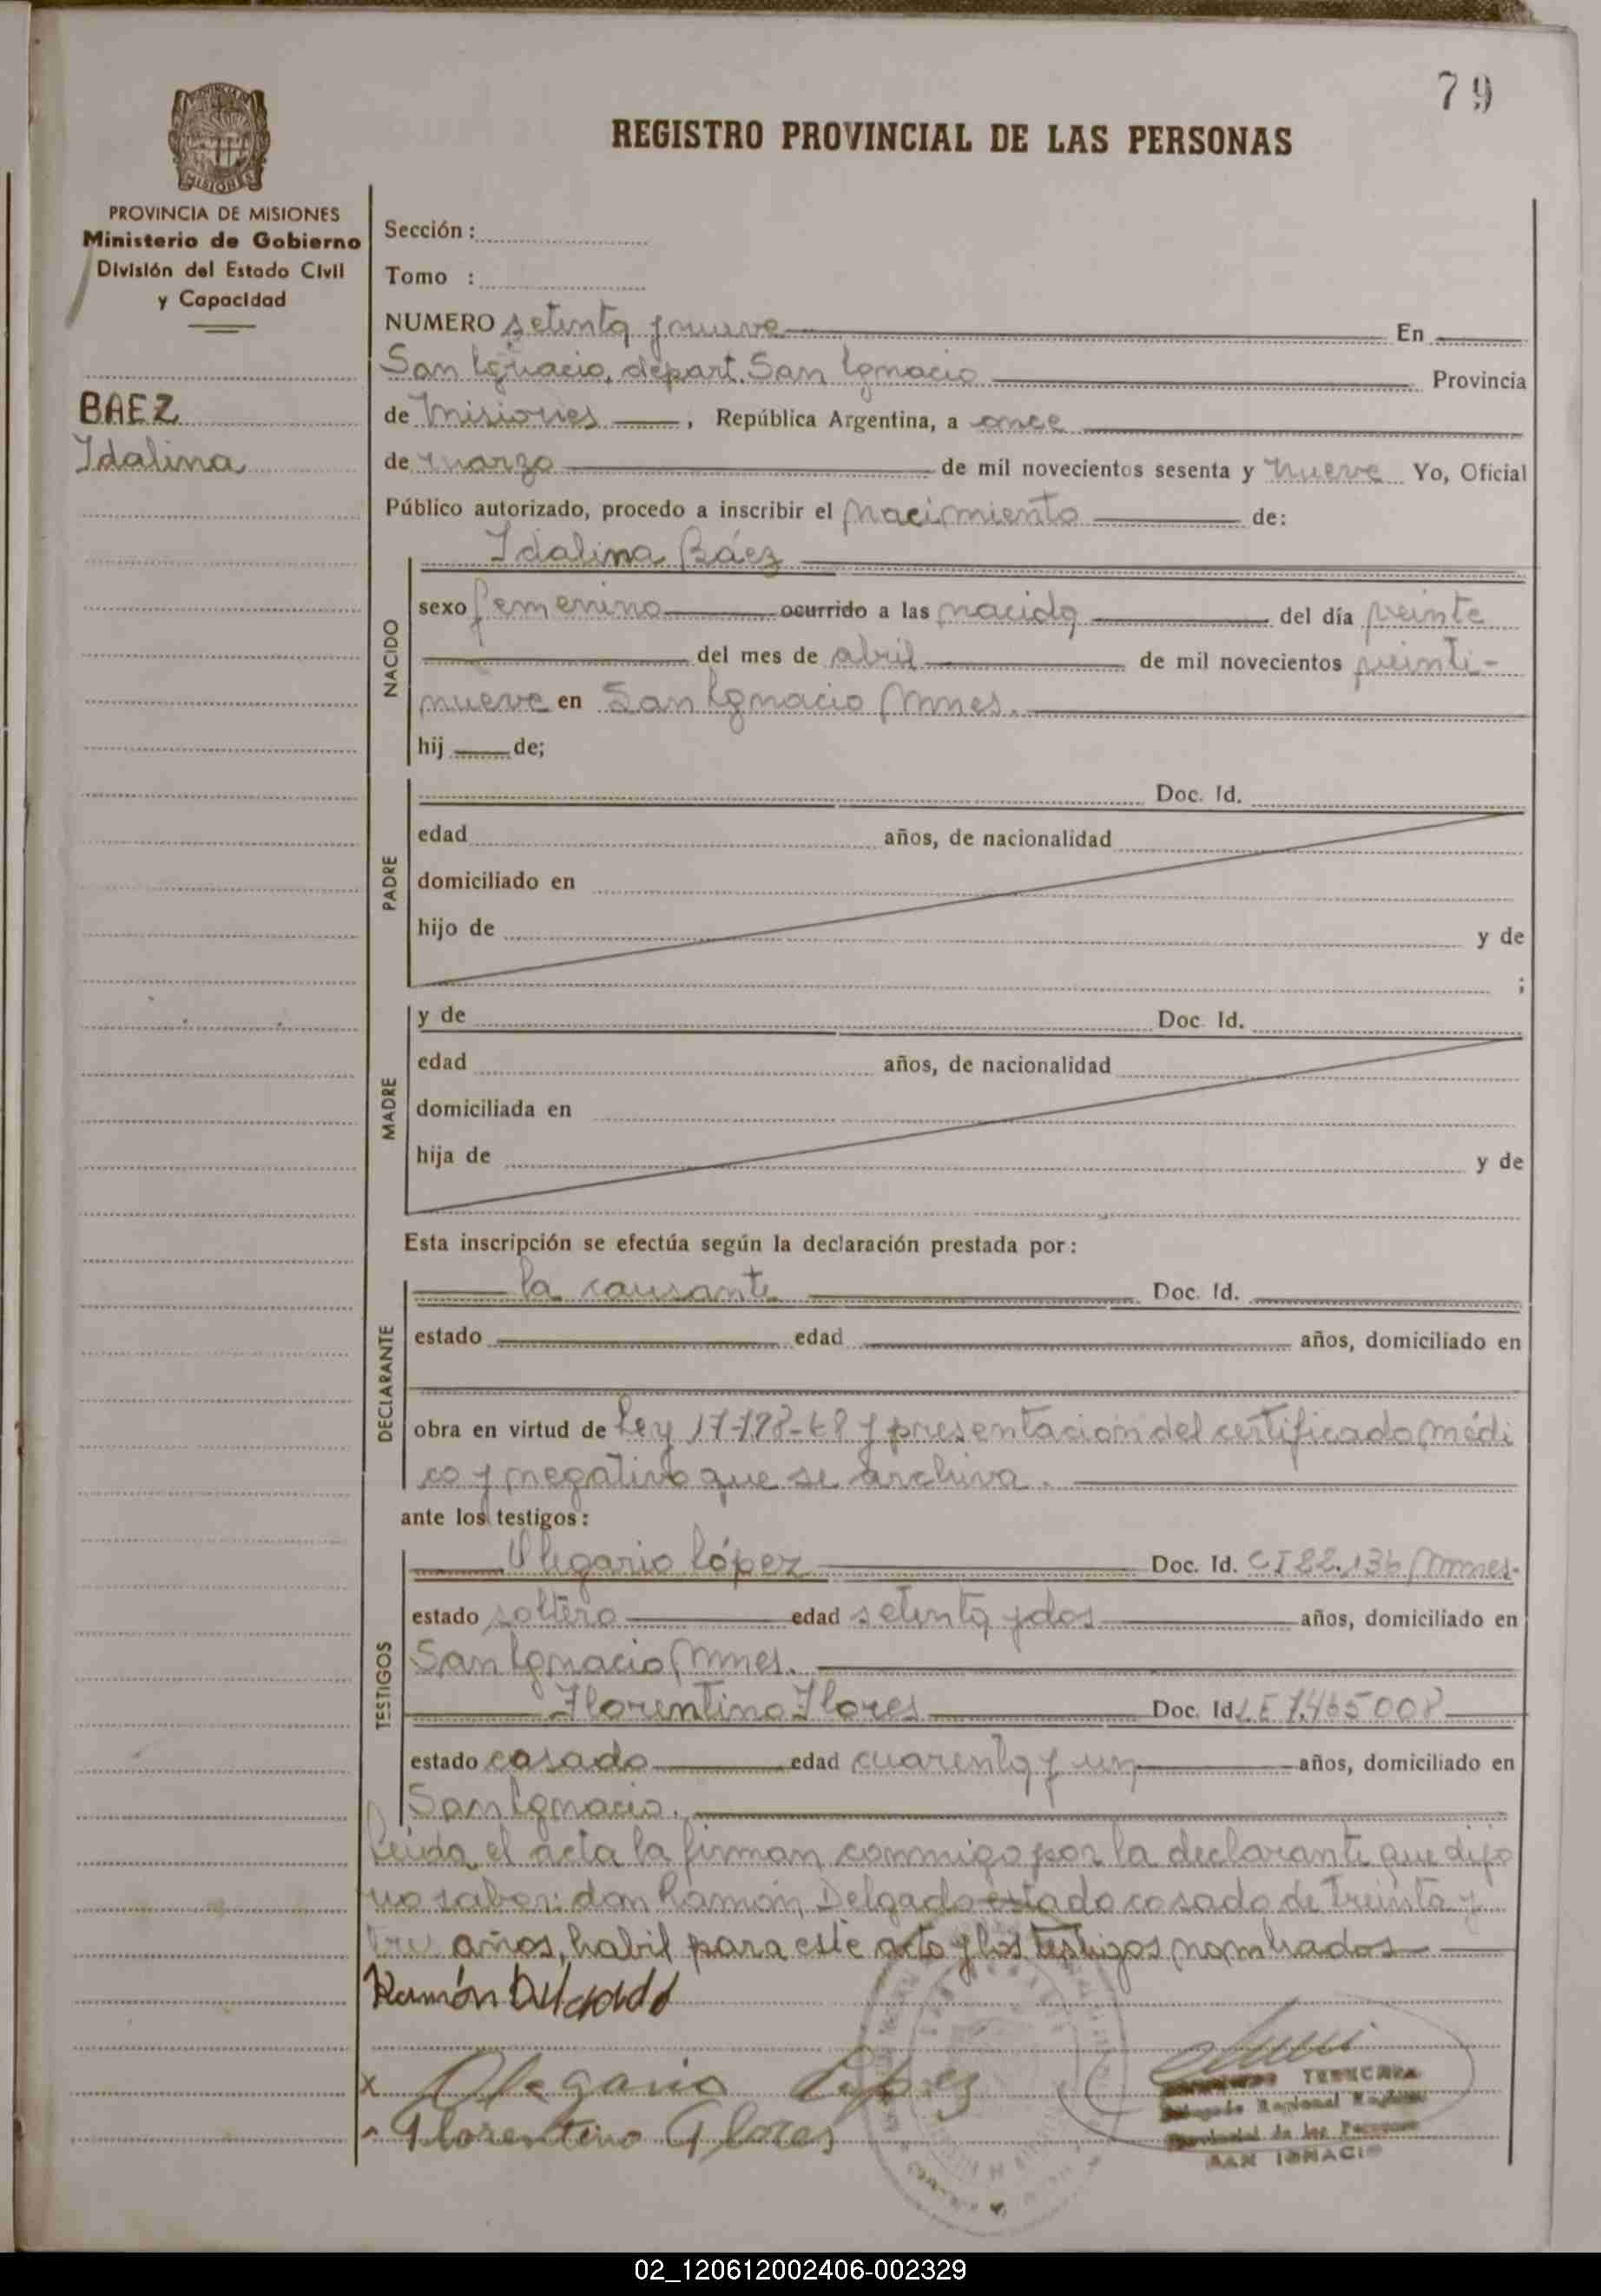 79
REGISTRO PROVINCIAL DE LAS PERSONAS
MISIONES
PROVINCIA DE MISIONES
Ministerio de Gobierno
División del Estado Civil
y Capacidad
BAEZ
Idalina
Sección :
Tomo :
NUMERO setenta y nueve En
San Ignacio, depart. San Ignacio Provincia
de Misiones , República Argentina, a once
de marzo de mil novecientos sesenta y nueve Yo, Oficial
Público autorizado, procedo a inscribir el nacimiento de:
Idalina Báez
NACIDO
sexo femenino ocurrido a las nacida del día veinte
del mes de abril de mil novecientos veinti-
nueve en San Ignacio Mnes.
hij de;
PADRE
Doc. Id.
edad años, de nacionalidad
domiciliado en
hijo de y de
;
MADRE
y de Doc. Id.
edad años, de nacionalidad
domiciliada en
hija de y de
Esta inscripción se efectúa según la declaración prestada por:
DECLARANTE
la causante Doc. Id.
estado edad años, domiciliado en
obra en virtud de Ley y presentación del certificado médi
co y negativo que se archiva.
ante los testigos:
TESTIGOS
Olegario López Doc. Id. CI 22.136 Mnes.
estado soltero edad setenta y dos años, domiciliado en
San Ignacio Mnes.
Florentino Flores Doc. Id. LE 7.465008
estado casado edad cuarenta y un años, domiciliado en
San Ignacio.
Leída el acta la firman conmigo por la declarante que dijo
no saber: don Ramón Delgado estado casado de treinta y
tres años, habil para este acto y los testigos nombrados
Ramón Delgado
x Olegario Lopez
Florentino Flores
TERECZKA
Delegado Regional Registro
Provincial de las Personas
SAN IGNACIO
02_120612002406-002329